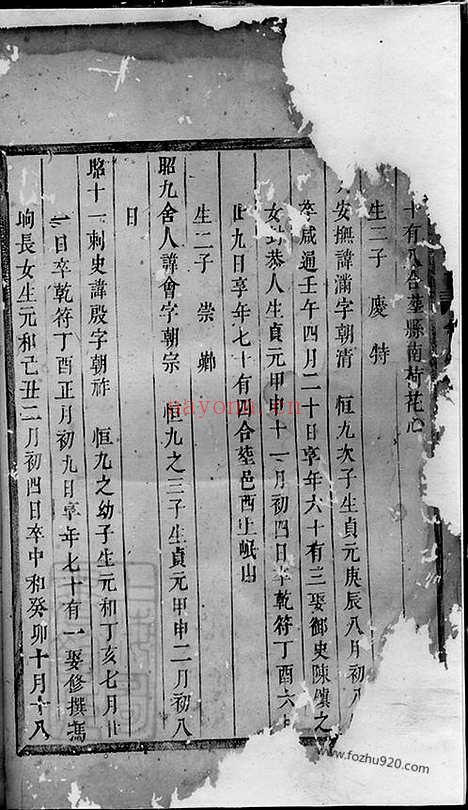 十有八合塟縣南荷花心
生二子 慶 特
安撫諱滿字朝清 恒九次子生貞元庚辰八月初八
卒咸通壬午四月二十日享年六十有三娶御史陳儥之
女 恭人生貞元甲申十一月初四日卒乾符丁酉六月
廿九日享年七十有四合塟邑西上岷山
生二子 崇 卿
昭九舍人諱會字朝宗 恒九之三子生貞元甲申二月初八
日
昭十一刺史諱殷字朝祚 恒九之幼子生元和丁亥七月廿
二日卒乾符丁酉正月初九日享年七十有一娶修撰馮
珦長女生元和己丑二月初四日卒中和癸卯十月十八
nayonu.cn
www.fozhu920.com